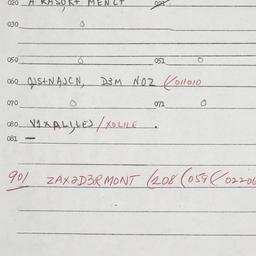 020 A RASORT MENCT 021
030
050 051
060 OJS+NAJCN, D3M NOZ (/011010
070 071
080 V1XALI,LES / XOLILE .
081 —
901 ZAX2D3RMONT (208 (059 (/02206